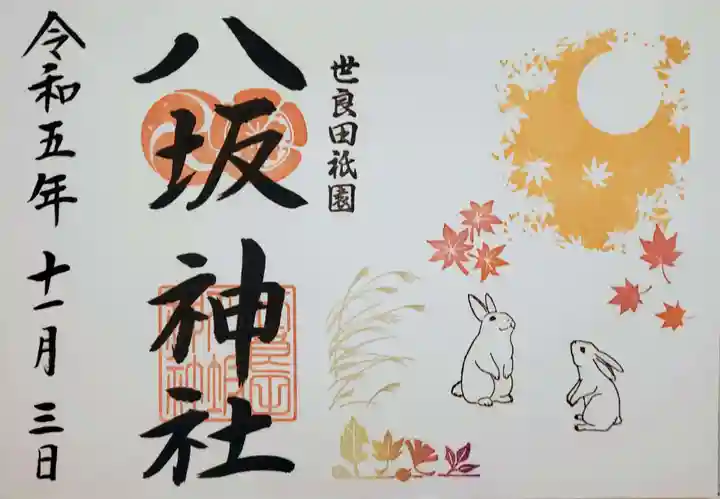 世良田祇園
八坂神社
令和五年十一月三日